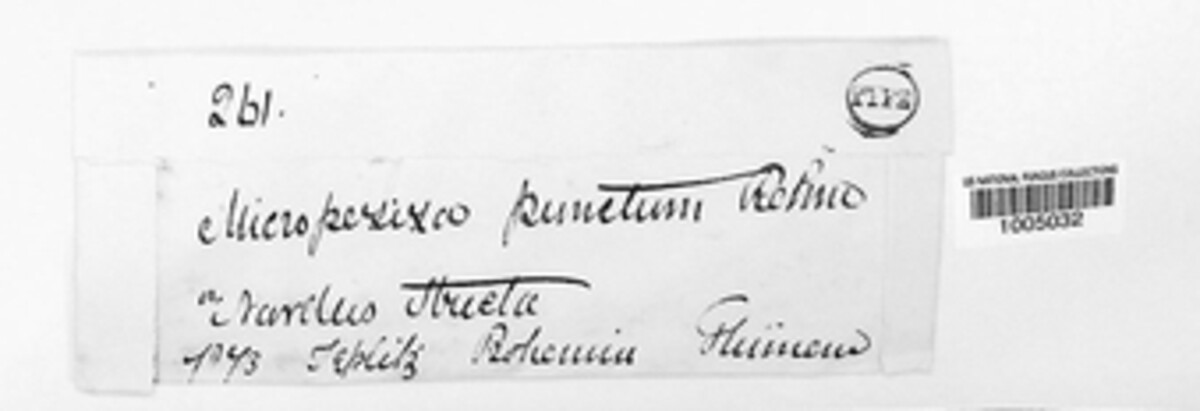 261.
Micropeziza punctum Rehm
Nardus Stricta
Teplitz Bohemia Thümen
US NATIONAL FUNGUS COLLECTIONS
1005032